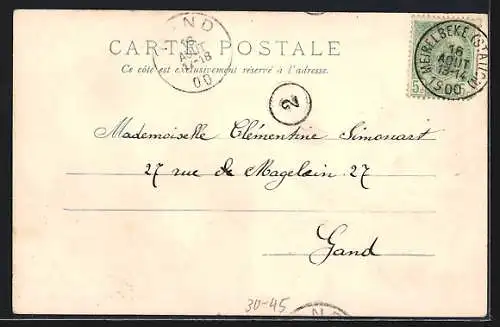 GAND
16
AOUT
17-18
00
CARTE POSTALE
Ce côté est exclusivement réservé à l'adresse.
MEIRELBEKE (STATION)
16
AOUT
13-14
1900
5
2
Mademoiselle Clémentine Simonart
27 rue de Magelein 27
Gand
30-45